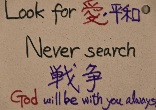 Look for 愛・平和
Never search
戦争
God will be with you always